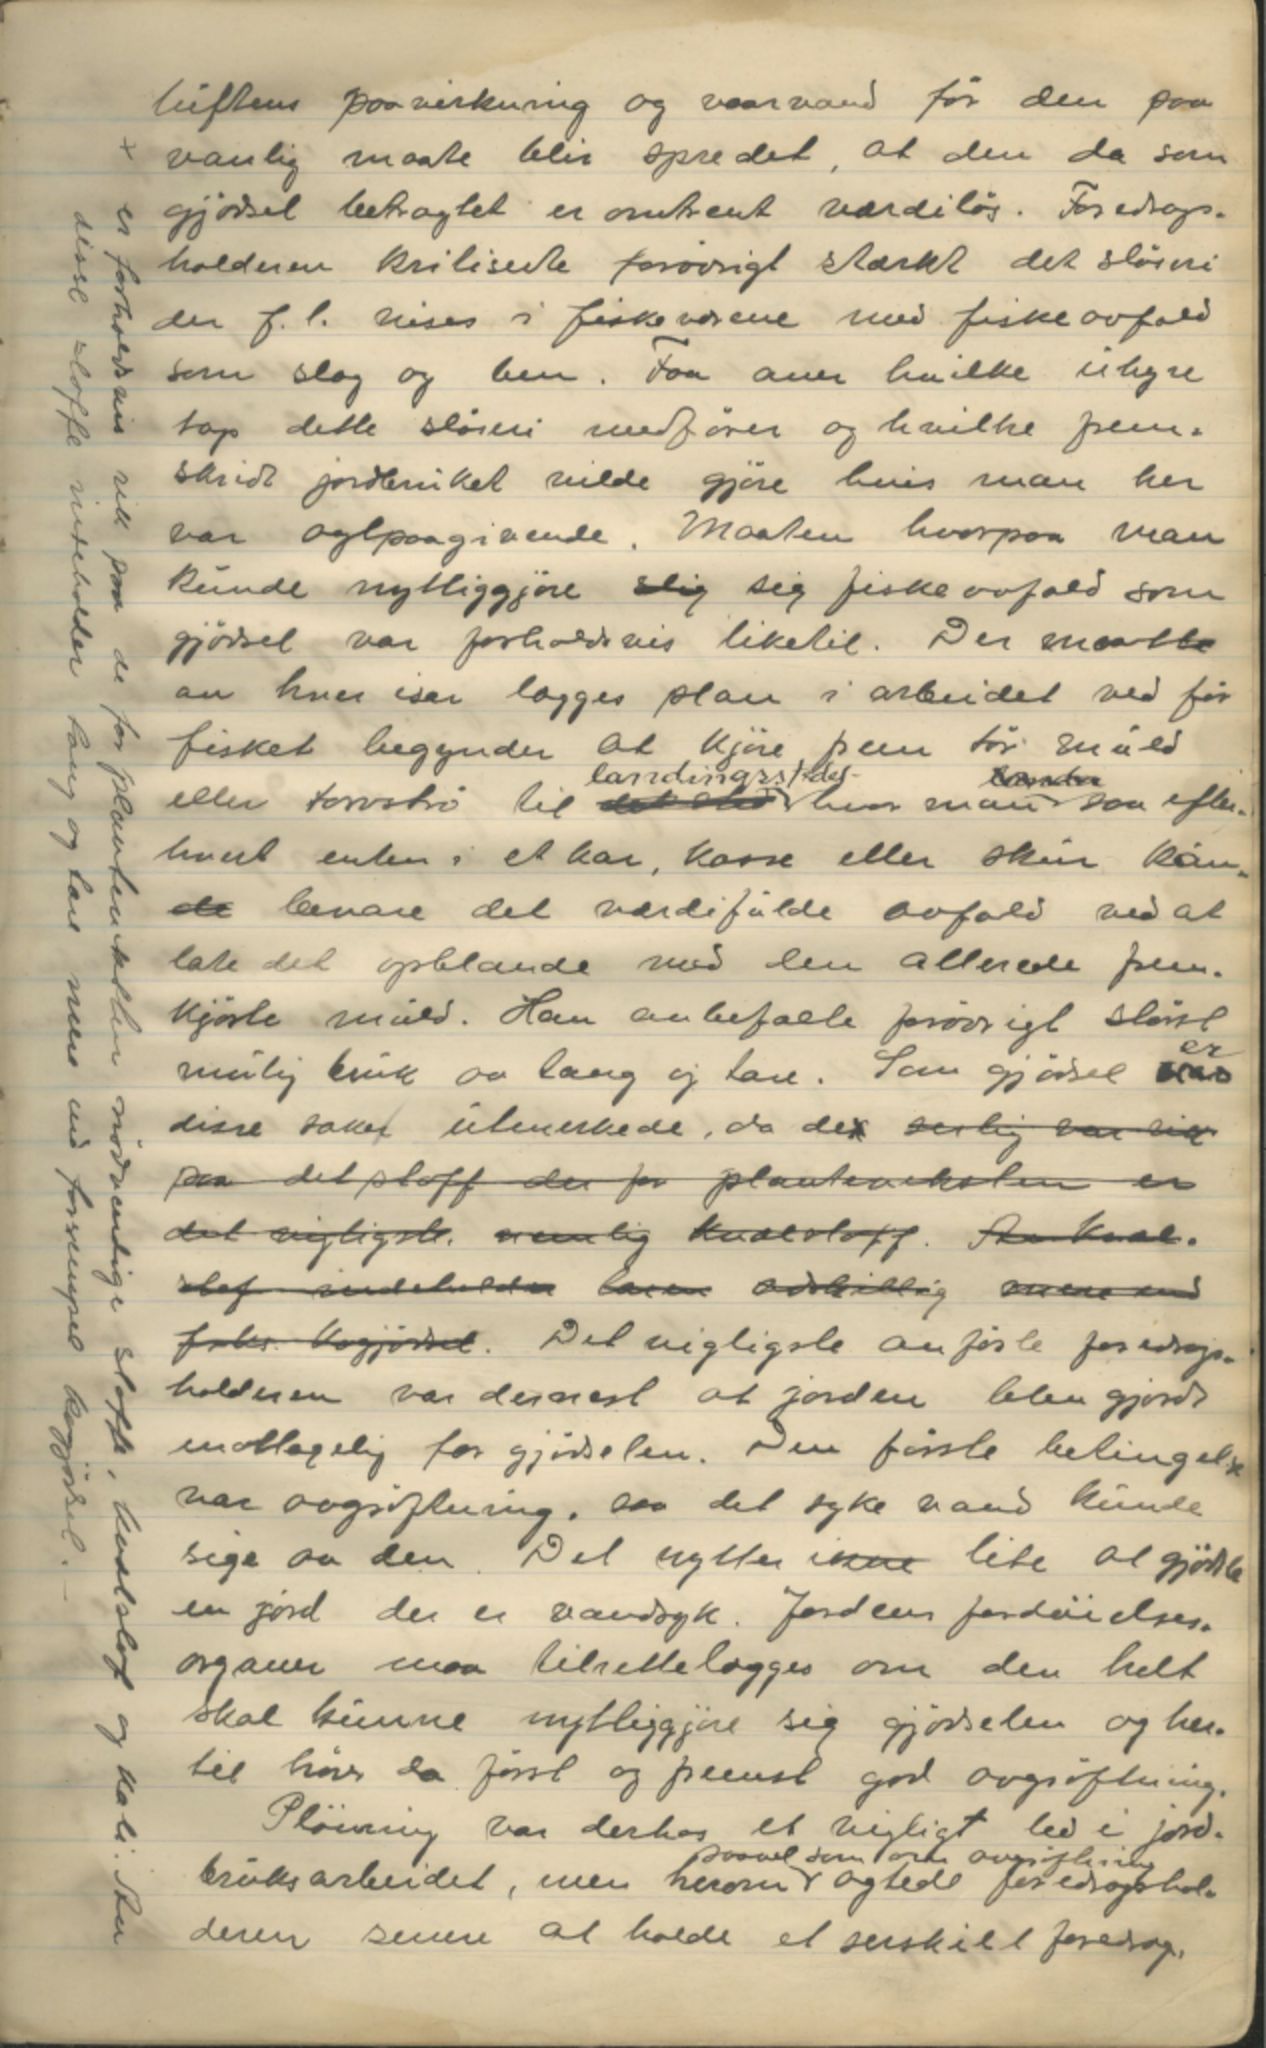 luftens paavirkning og vaarvand før den paa
vanlig maate blir spredet, at den da som
gjødsel betragtet er omtrent værdiløs. Foredrags-
holderen kritiserte forøvrigt stærkt det sløseri
der f.l. vises i fiskeværene med fiskeavfald
som slog og ben. Faa aner hvilke uhyre
tap dette sløseri medfører og hvilke frem-
skridt jordbruket vilde gjøre hvis man her
var agtpaagivende. Maaten hvorpaa man
kunde nyttiggjøre slig sig fiskeavfald som
gjødsel var forholdsvis liketil. Der maatte
av hver især lægges plan i arbeidet ved før
fisket begynder at kjøre frem tør muld
landingsstedet
eller torvstrø til det sted hvor man saa efter-
hvert enten i et kar, kasse eller skur kan-
de bevare det værdifulde avfald ved at
late det opblande med den allerede frem-
kjørte muld. Han anbefalte forøvrigt størst
mulig bruk av tang og tare. Som gjødsel var
er
disse saker utmerkede, da de særlig var rik
paa det stoff der for planteveksten er
det vigtigste, nemlig kvælstoff. Av kvæl-
stof indeholder taren adskillig mere end
f.eks. kogjødsel. Det vigtigste anførte foredrags-
holderen var dernæst at jorden blev gjordt
mottagelig for gjødselen. Den første betingelse
var avgrøftning, saa det syke vand kunde
sige av den. Det nytter ikke lite at gjødsle
en jord der er vandsyk. Jordens fordøielses-
organer maa tilrettelægges om den helt
skal kunne nyttiggjøre sig gjødselen og her-
til hører da først og fremst god avgrøftning.
Pløining var derhos et vigtigt led i jord-
saavel som om avgrøftning
bruksarbeidet, men herom agtede foredragshol-
deren senere at holde et særskilt foredrag.
x er forholdsvis rik paa de for planteveksten nødvendige stoffe, kvælstof og kali. Av
disse stoffe indeholder tang og tare mere end forexempel kogjødsel. –